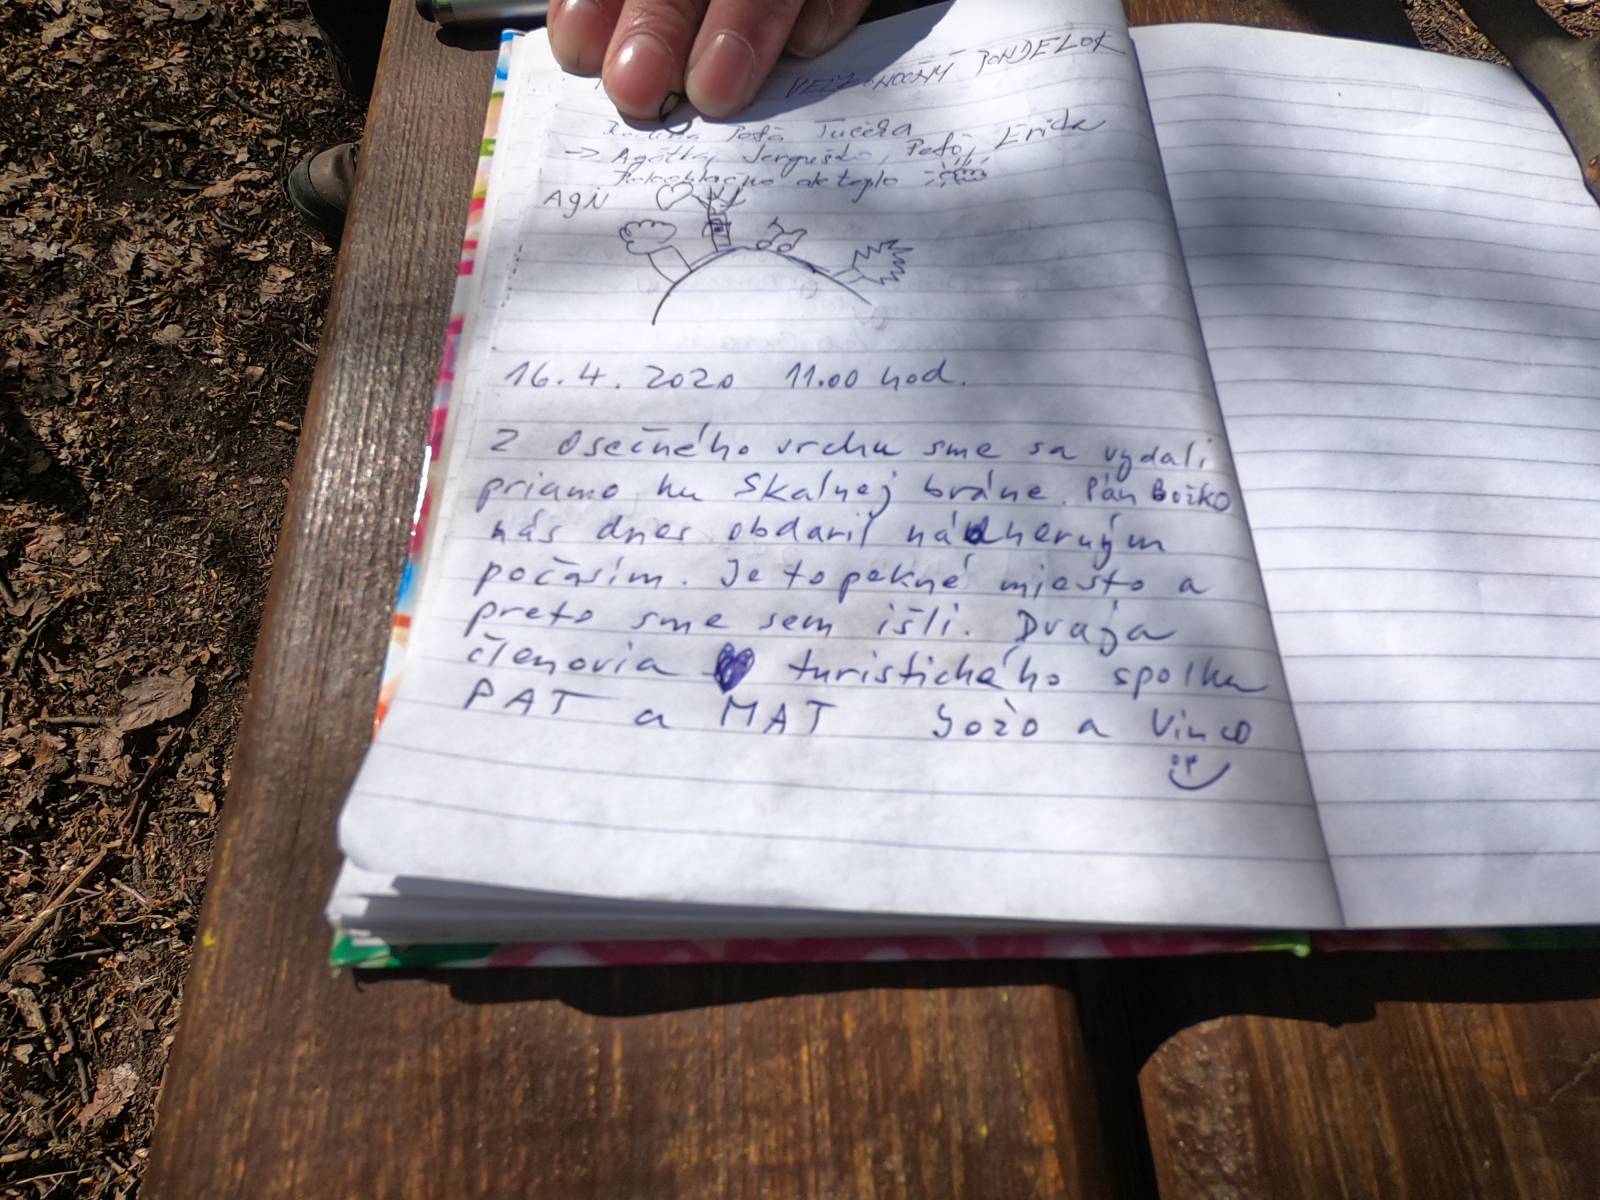 VEĽKONOČNÝ PONDELOK
Rodina Peťa Tučeka
→ Agátka, Jerguško, Peťo, Erika
Polooblačno ale teplo
Agi
16.4.2020 11.00 hod.
Z Osečného vrchu sme sa vydali
priamo ku Skalnej bráne. Pán Božko
nás dnes obdaril nádherným
počasím. Je to pekné miesto a
preto sme sem išli. Dvaja
členovia turistického spolku
PAT a MAT Jožo a Vinco